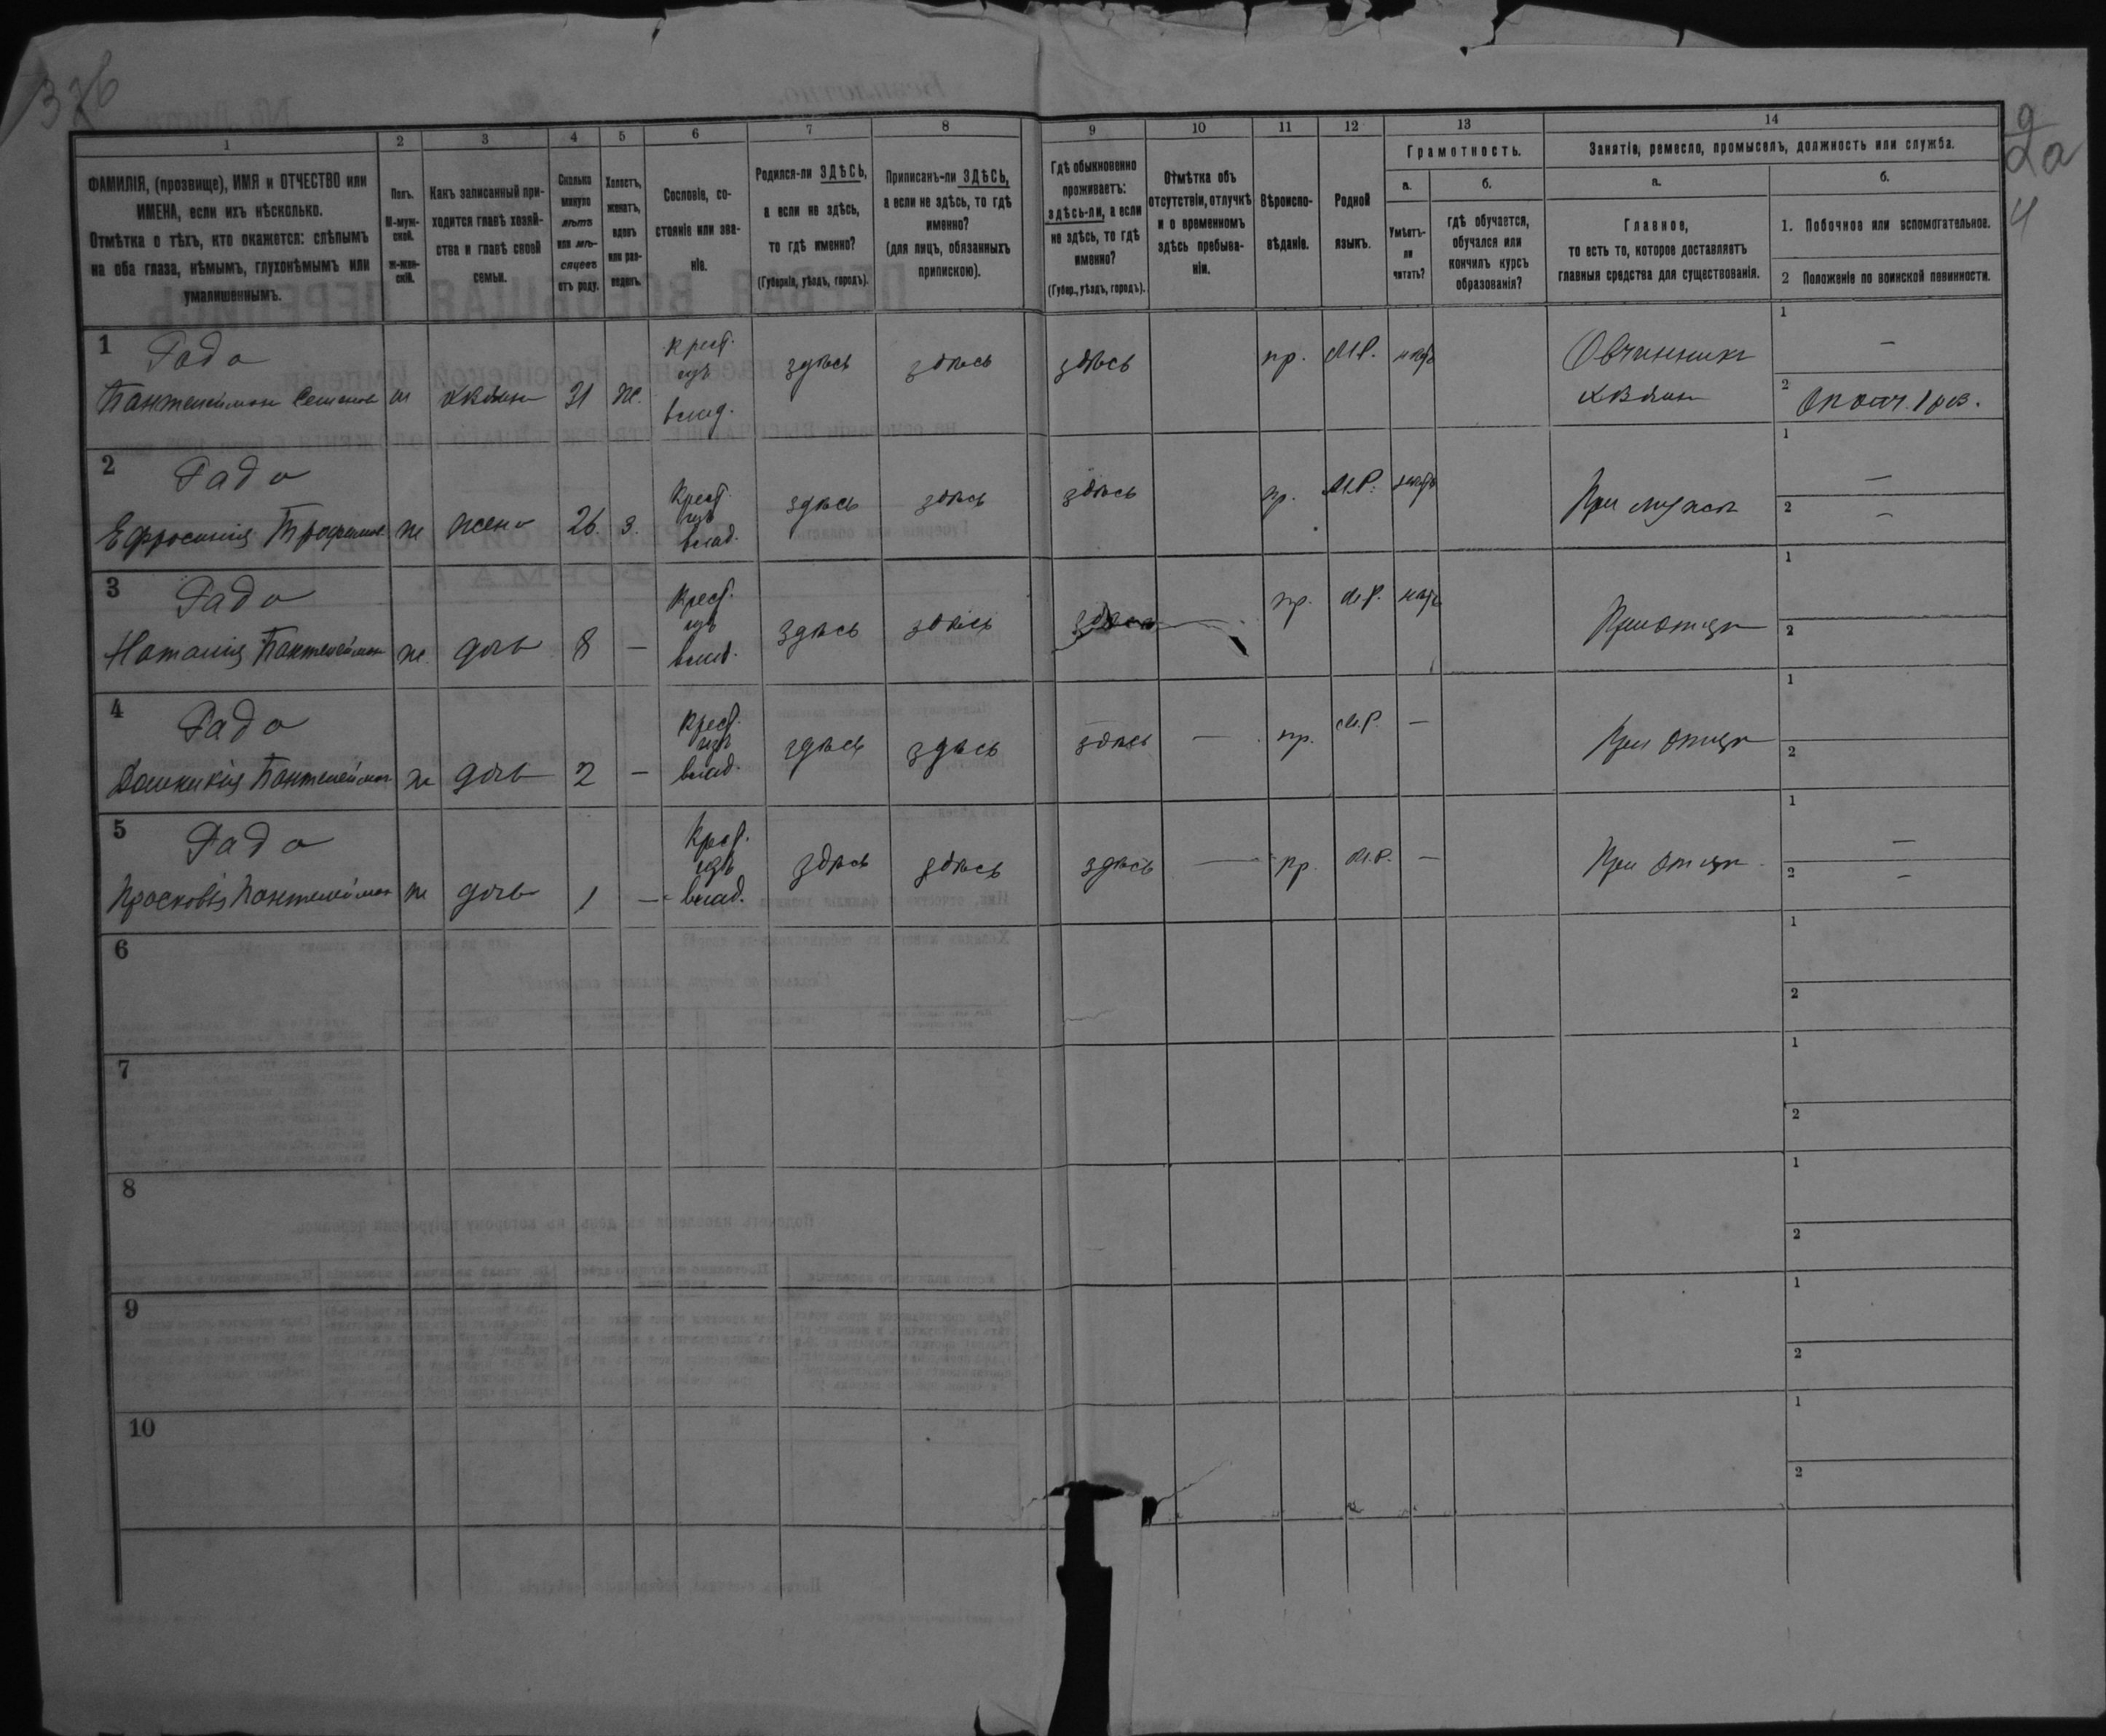 37б
9
2а
4
1 2 3 4 5 6 7 8 9 10 11 12 13 14
ФАМИЛІЯ, (прозвище), ИМЯ и ОТЧЕСТВО или
ИМЕНА, если ихъ нѣсколько.
Отмѣтка о тѣхъ, кто окажется: слѣпымъ
на оба глаза, нѣмымъ, глухонѣмымъ или
умалишеннымъ.
Полъ.
М-муж-
ской.
Ж-жен-
скій.
Какъ записанный при-
ходится главѣ хозяй-
ства и главѣ своей
семьи.
Сколько
минуло
лѣтъ
или мѣ-
сяцевъ
отъ роду.
Холостъ,
женатъ,
вдовъ
или раз-
веденъ.
Сословіе, со-
стояніе или зва-
ніе.
Родился-ли ЗДѢСЬ,
а если не здѣсь,
то гдѣ именно?
(Губернія, уѣздъ, городъ).
Приписанъ-ли ЗДѢСЬ,
а если не здѣсь, то гдѣ
именно?
(для лицъ, обязанныхъ
припискою).
Гдѣ обыкновенно
проживаетъ:
здѣсь-ли, а если
не здѣсь, то гдѣ
именно?
(Губер., уѣздъ, городъ).
Отмѣтка объ
отсутствіи, отлучкѣ
и о временномъ
здѣсь пребыва-
ніи.
Вѣроиспо-
вѣданіе.
Родной
языкъ.
Грамотность.
а.
Умѣетъ-
ли
читать?
б.
гдѣ обучается,
обучался или
кончилъ курсъ
образованія?
Занятіе, ремесло, промыселъ, должность или служба.
а.
Главное,
то есть то, которое доставляетъ
главныя средства для существованія.
б.
1. Побочное или вспомогательное.
2 Положеніе по воинской повинности.
1 Гадо
Пантелеймон Семенов м хозяин 31 ж. крест. изъ влад. здѣсь здѣсь здѣсь пр. М.Р. нѣтъ Овчинникъ 1 —
хозяин 2
2 Гадо
Ефросинія Трофимов ж жена 26. з. Крест. изъ влад. здѣсь здѣсь здѣсь пр. М.Р. нѣтъ При мужѣ 1 — 2 —
3 Гадо
Наталія Пантелеймон ж. дочь 8 — Крест. изъ влад. здѣсь здѣсь здѣсь — пр. М.Р. нѣтъ При отцѣ 1 2
4 Гадо
Пантелеймон ж дочь 2 — Крест. изъ влад. здѣсь здѣсь здѣсь — пр. М.Р. — При отцѣ 1 2
5 Гадо
Прасковія Пантелеймон ж дочь 1 — Крест. изъ влад. здѣсь здѣсь здѣсь — пр. М.Р. — При отцѣ 1 — 2 —
6 1 2
7 1 2
8 1 2
9 1 2
10 1 2